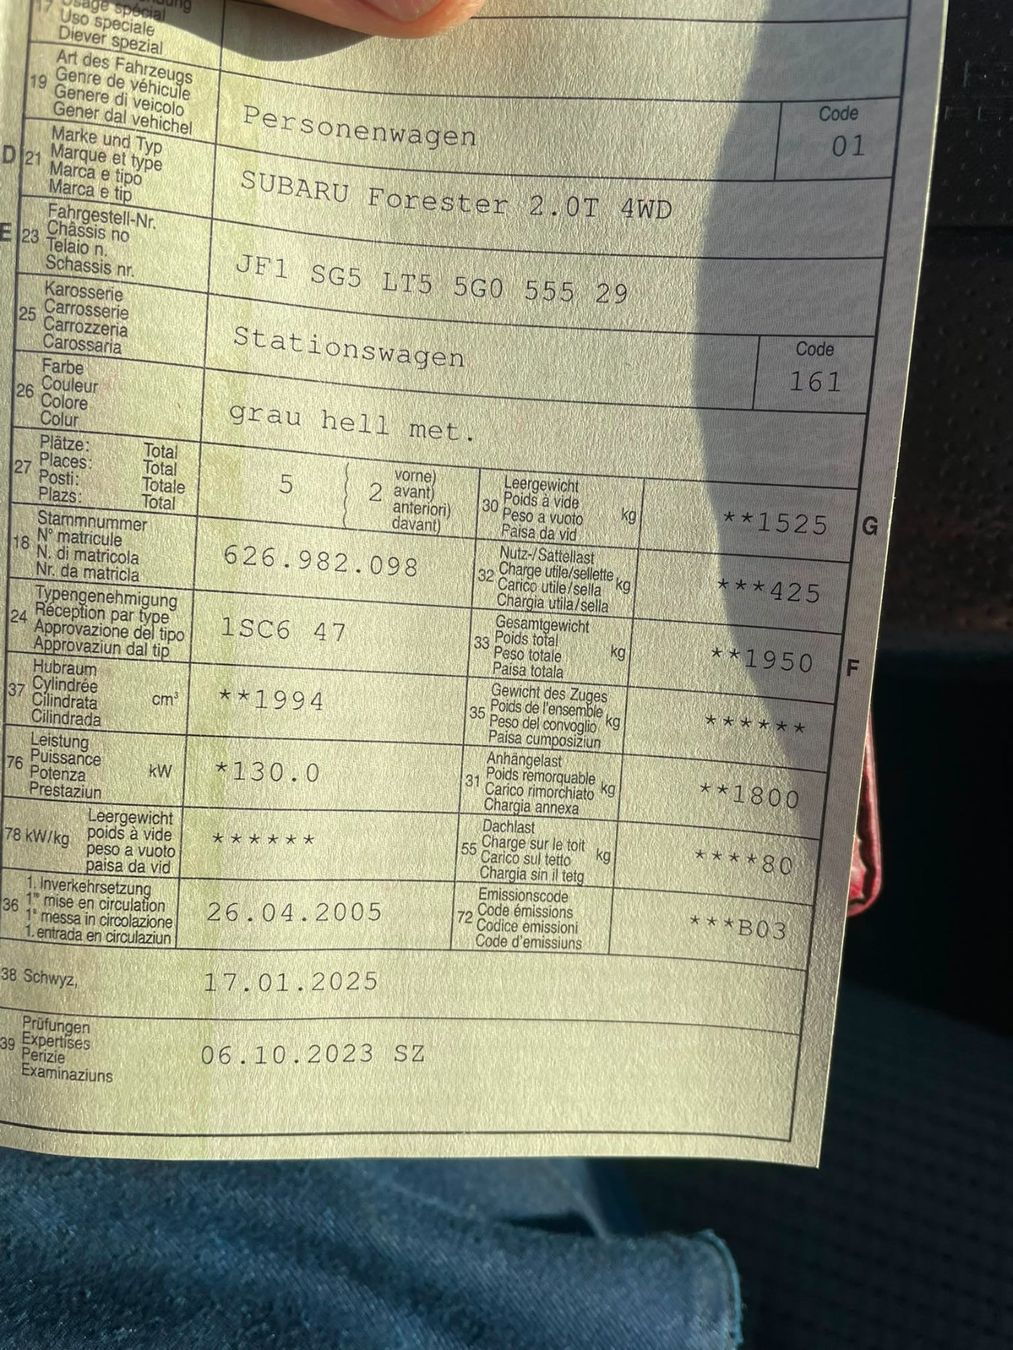 17 Usage spécial
Uso speciale
Diever spezial
19 Art des Fahrzeugs
Genre de véhicule
Genere di veicolo
Gener dal vehichel
Personenwagen
Code
01
D 21 Marke und Typ
Marque et type
Marca e tipo
Marca e tip
SUBARU Forester 2.0T 4WD
E 23 Fahrgestell-Nr.
Châssis no
Telaio n.
Schassis nr.
JF1 SG5 LT5 5G0 555 29
25 Karosserie
Carrosserie
Carrozzeria
Carossaria
Stationswagen
Code
161
26 Farbe
Couleur
Colore
Colur
grau hell met.
27 Plätze: Total
Places: Total
Posti: Totale
Plazs: Total
5 2 vorne)
avant)
anteriori)
davant)
30 Leergewicht
Poids à vide
Peso a vuoto
Paisa da vid
kg
**1525 G
18 Stammnummer
N° matricule
N. di matricola
Nr. da matricla
626.982.098
32 Nutz-/Sattellast
Charge utile/sellette
Carico utile/sella
Chargia utila/sella
kg
***425
24 Typengenehmigung
Réception par type
Approvazione del tipo
Approvaziun dal tip
1SC6 47
33 Gesamtgewicht
Poids total
Peso totale
Paisa totala
kg
**1950 F
37 Hubraum
Cylindrée
Cilindrata
Cilindrada
cm³
**1994
35 Gewicht des Zuges
Poids de l'ensemble
Peso del convoglio
Paisa cumposiziun
kg
******
76 Leistung
Puissance
Potenza
Prestaziun
kW
*130.0
31 Anhängelast
Poids remorquable
Carico rimorchiato
Chargia annexa
kg
**1800
78 kW/kg Leergewicht
poids à vide
peso a vuoto
paisa da vid
******
55 Dachlast
Charge sur le toit
Carico sul tetto
Chargia sin il tetg
kg
****80
36 1. Inverkehrsetzung
1re mise en circulation
1a messa in circolazione
1. entrada en circulaziun
26.04.2005
72 Emissionscode
Code émissions
Codice emissioni
Code d'emissiuns
***B03
38 Schwyz, 17.01.2025
39 Prüfungen
Expertises
Perizie
Examinaziuns
06.10.2023 SZ